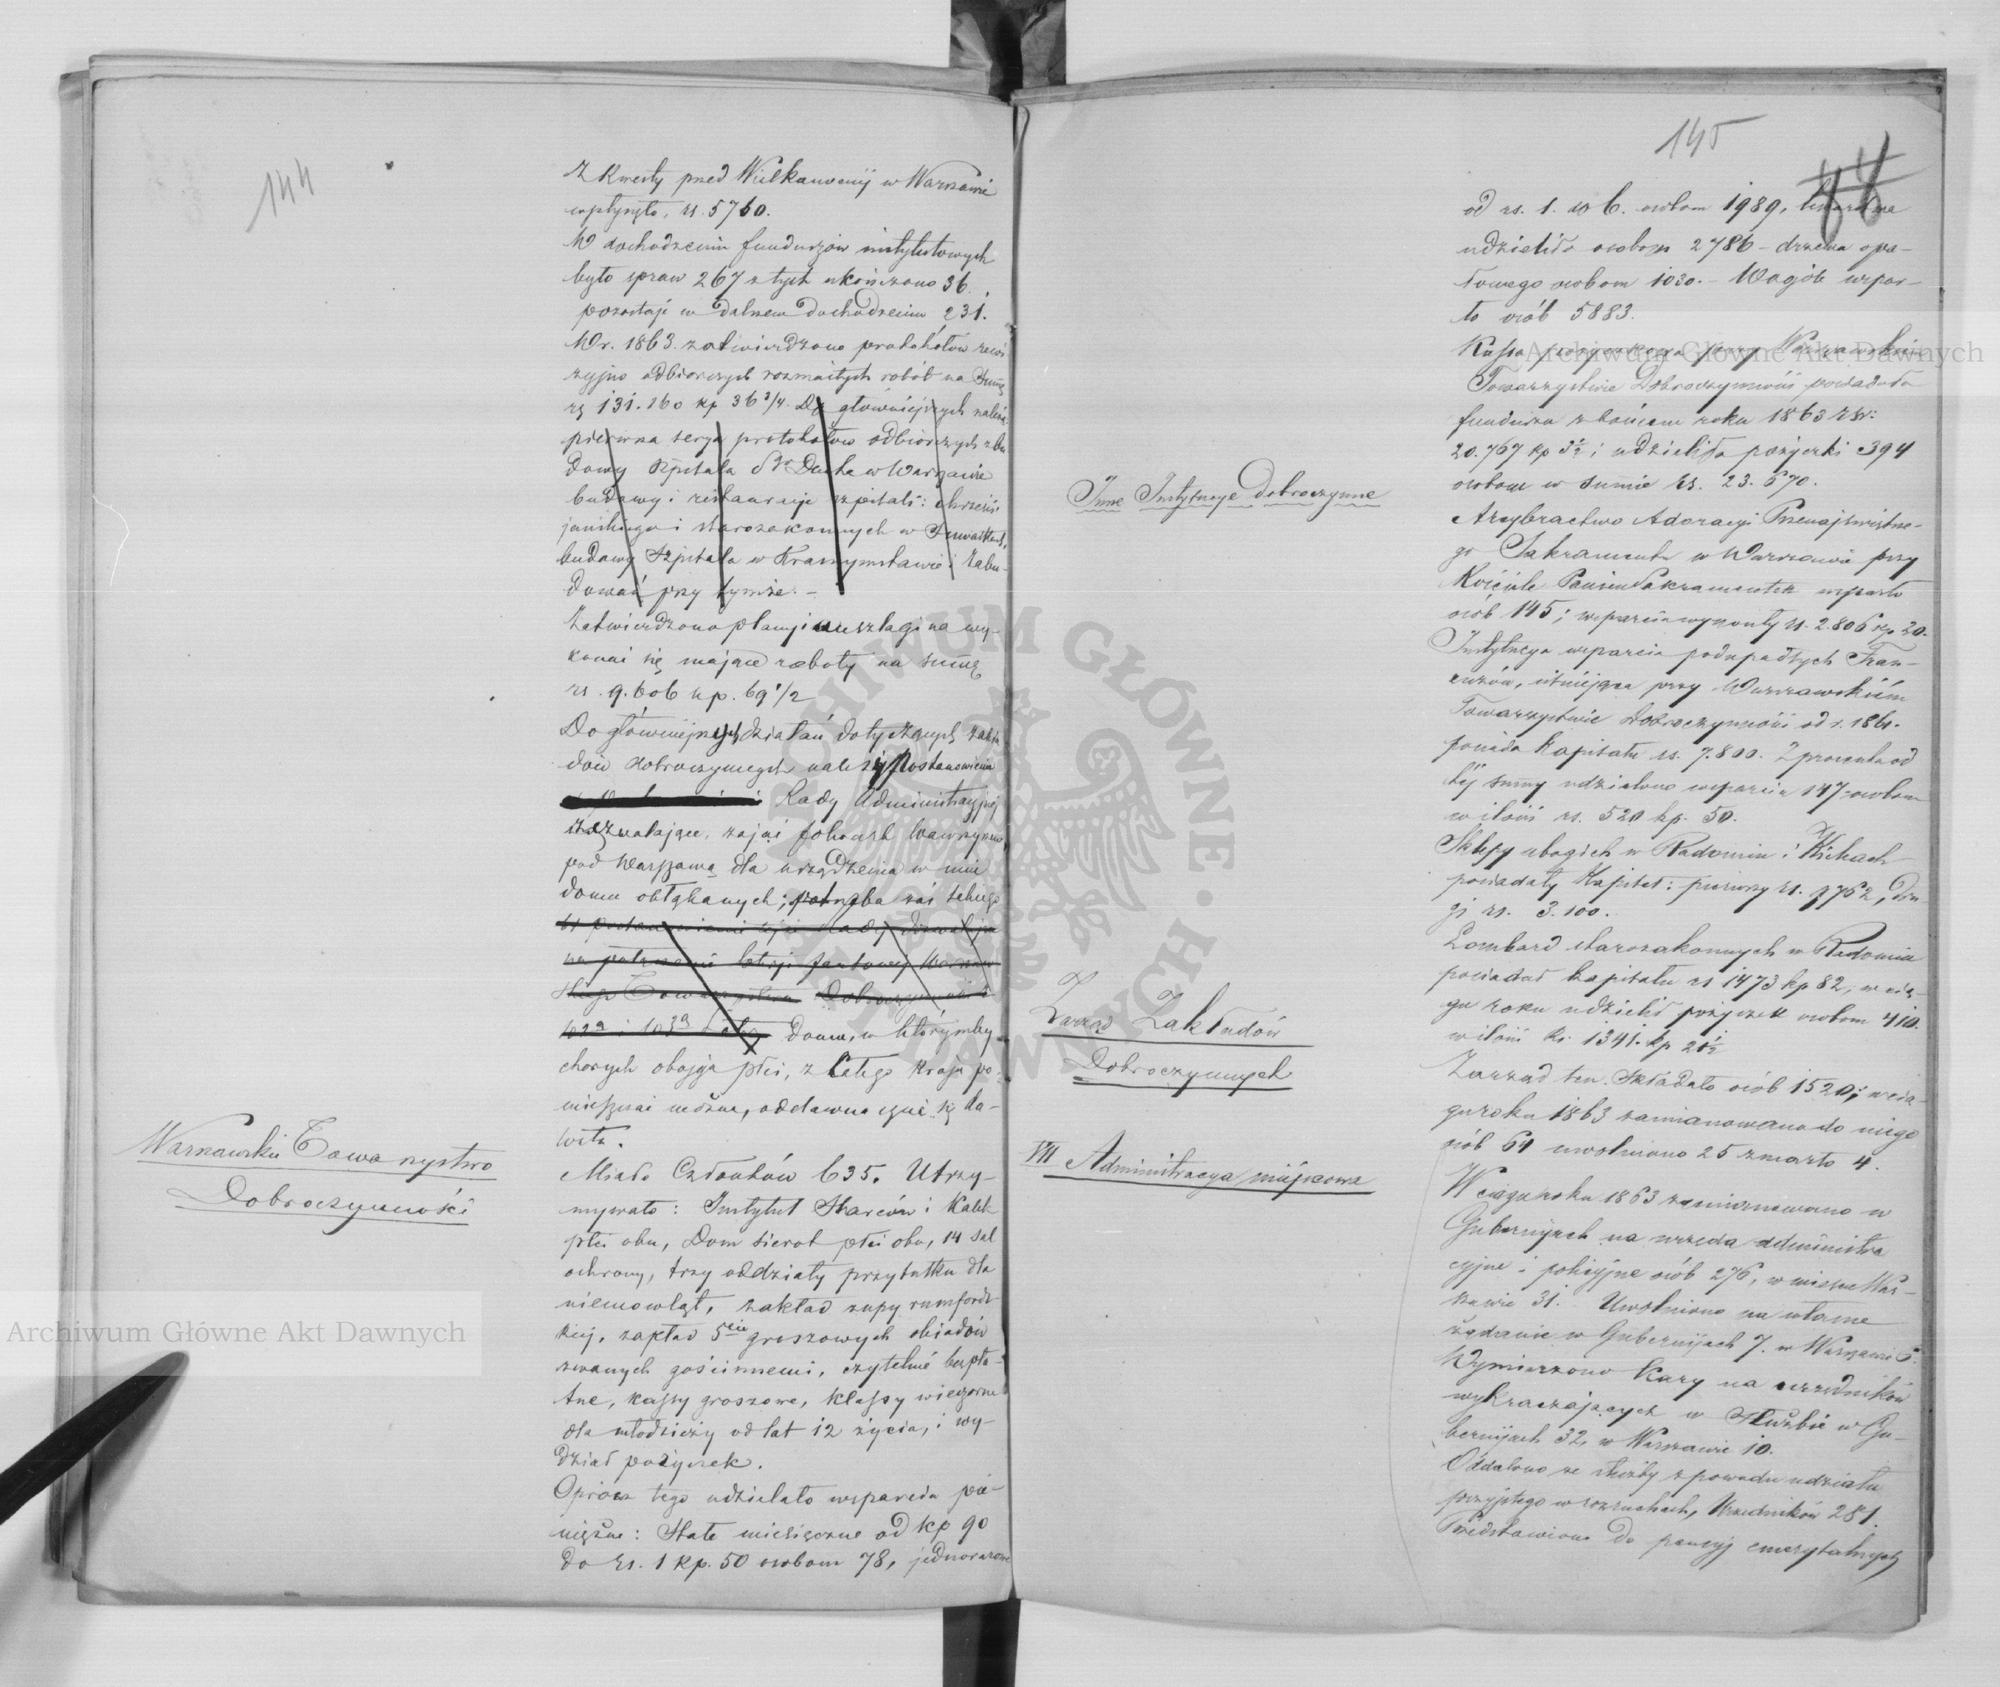 144
Z kwesty przed Wielkanocnéj w Warszawie
wpłynęło, rs. 5760.
W dochodzeniu funduszów instytutowych
było spraw 267 z tych ukończono 36.
pozostaje w dalszem dochodzeniu 231.
W r. 1863. zatwierdzono protokołów rewi-
zyjno odbiorczych rozmaitych robót na Summę
rs 131.160 kp 36 3/4. Do główniejszych należą
pierwsza serya protokołów odbiorczych z bu
dowy Szpitala Sgo Ducha w Warszawie
budowy i restauracyi szpitali: chrześci
jańskiego i starozakonnych w Suwałkach,
budowy Szpitala w Krasnymstawie i Zabu-
dowań przy tymże. –
Zatwierdzono plany i anszlagi na wy-
konać się mające roboty na summę
rs. 9.606 kp. 69 1/2
Do główniejszych działań dotyczących zakła
dów dobroczynnych należy Postanowienie
Rady Administracyjnéj
zezwalające, zająć folwark Wawrzyszew
pod Warszawą dla urządzenia w nim
domu obłąkanych; potrzeba zaś takiego
Domu, w którymby
chorych obojga płci, z całego kraju po-
mieszczać można, oddawna czuć się da-
wała.
Warszawskie Towarzystwo
Dobroczynności
Miało Członków 635. Utrzy-
mywało: Instytut Starców i Kalek
płci obu, Dom sierot płci obu, 14 sal
ochrony, trzy oddziały przytułku dla
niemowląt, zakład zupy rumfordz-
kiéj, zakład 5cio groszowych obiadów
zwanych gościnnemi, czytelnie bezpła-
tne, kassy groszowe, klassy wieczorne
dla młodzieży od lat 12 życia, i wy-
dział pożyczek.
Oprócz tego udzielało wsparcia pie-
niężne: Stałe miesięczne od kp 90
do rs. 1 kp. 50 osobom 78, jednorazowe
145
od rs. 1. do 6. osobom 1989,
udzieliło osobom 2786 – drzewa opa-
łowego osobom 1030. – Wogóle wspar-
to osób 5883.
Kassa pożyczkowa przy Warszawskiém
Towarzystwie Dobroczynności posiadała
funduszu z końcem roku 1863 rsr:
20.767 kp 3½; i udzieliła pożyczki 394
osobom w summie rs. 23.670.
Inne Instytucye dobroczynne
Arcybractwo Adoracyi Przenajświętsze-
go Sakramentu w Warszawie przy
Kościele Panien Sakramentek wsparło
osób 145; wsparcia wynosiły rs. 2.806 kp 20.
Instytucya wsparcia podupadłych Fran-
cuzów, istniejąca przy Warszawskiém
Towarzystwie Dobroczynności od r. 1861.
posiada kapitału rs. 7.800. Z procentu od
téj summy udzielono wsparcia 147 osobom
w ilości rs. 520 kp. 50.
Sklepy ubogich w Radomiu i Kielcach
posiadały kapitał: pierwszy rs. 9762, dru
gi rs. 3.100.
Lombard starozakonnych w Radomiu
posiadał kapitału rs 1473 kp 82, w cią-
gu roku udzielił pożyczek osobom 410.
w ilości rs. 1341. kp 21½
Zarząd Zakładów
Dobroczynnych
Zarząd ten składało osób 1520; w cią-
gu roku 1863 zamianowano do niego
osób 64 uwolniono 25 zmarło 4.
VII Administracya miejscowa
W ciągu roku 1863 zamianowano w
Guberniach na urzęda administra
cyjne i policyjne osób 276, w mieście War-
szawie 31. Uwolniono na własne
żądanie w Gubernijach 7. w Warszawie 6.
Wymierzono kary na urzędników
wykraczających w służbie w Gu-
bernijach 32, w Warszawie 10.
Oddalono ze służby z powodu udziału
przyjętego w rozruchach, Urzędników 281.
Przedstawiono do pensyj emerytalnych
ARCHIWUM GŁÓWNE AKT DAWNYCH
Archiwum Główne Akt Dawnych
Archiwum Główne Akt Dawnych